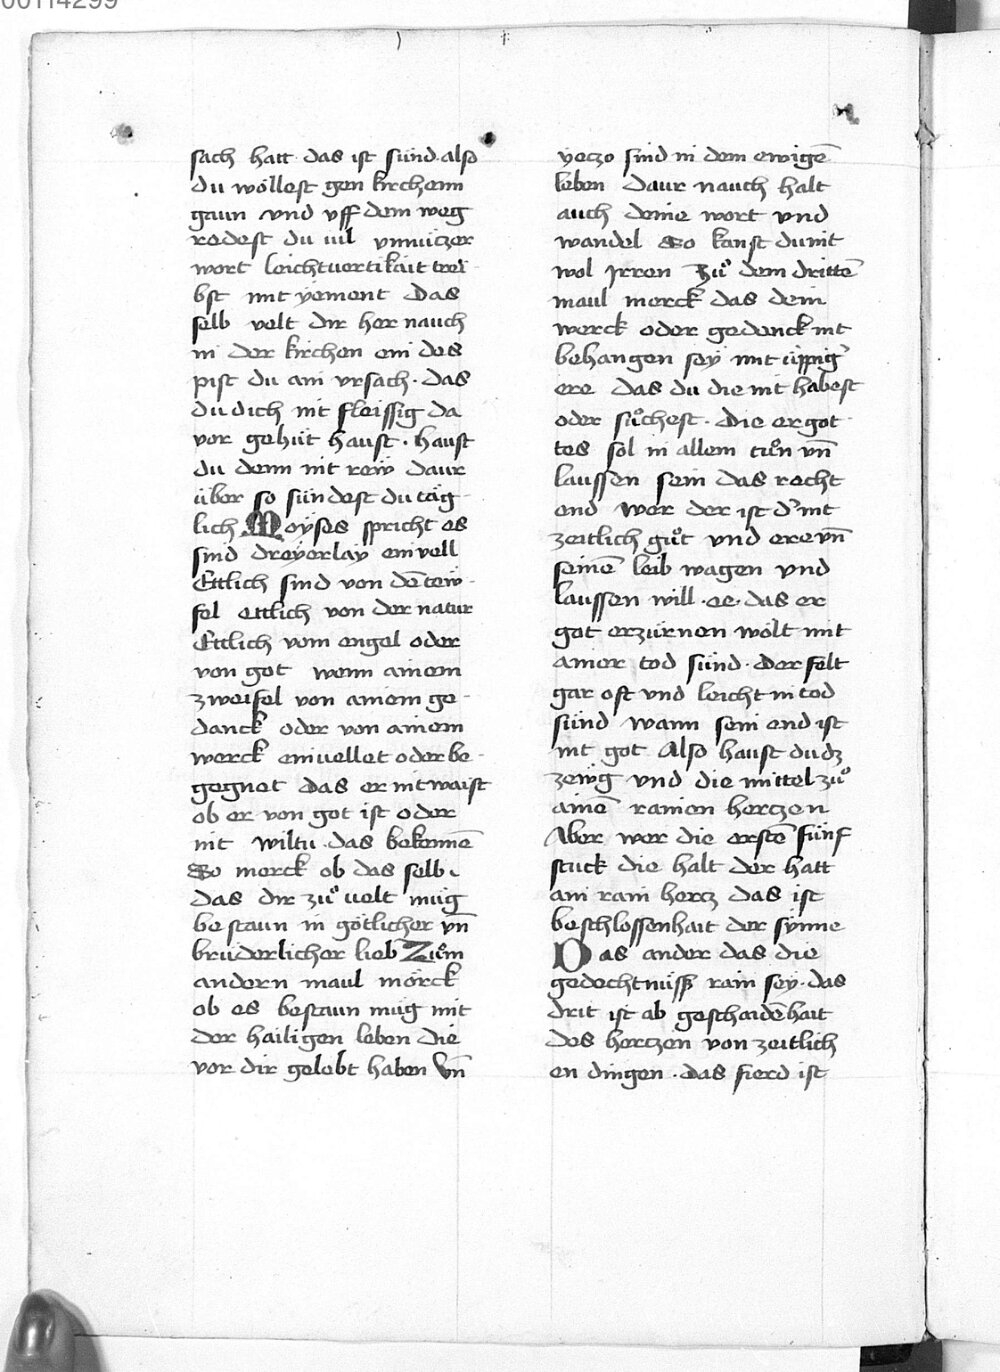 00114299
sach hatt das ist sünd also
du wöllest gen kirchenn
gaun vnd vff dem weg
redest du uil vnnüczer
wort leichtuertikait trei
bst mit yement Das
selb velt dir her nauch
in der kirchen ein des
pist du ain vrsach · das
du dich nit fleissig da
vor gehüt haust · haust
du denn nit rew daur
über so sündest du täg
lich Moyses spricht es
sind dreyerlay einvell
Ettlich sind von dē tew
fel ettlich von der natur
Ettlich vom engel oder
von got wenn ainem
zweifel von ainem ge
danck oder von ainem
werck einuellet oder be
gegnet das er nit waist
ob er von got ist oder
nit wiltu das bekennē
So merck ob das selb
das dir zuͦ uelt müg
bestaun in götlicher vn̄
brüderlicher lieb Zuͦm
andern maul mörck
ob es bestaun müg mit
der hailigen leben die
vor dir gelebt haben Vn̄
yeczo sind in dem ewigē
leben Daur nauch halt
auch deine wort vnd
wandel So kanst du nit
wol Jrren Zuͦ dem drittē
maul merck das dein
werck oder gedenck nit
behangen sey mit üppig̉
ere das du die nit habest
oder suͦchest · Die er got
tes sol in allem tuͦn vn̄
laussen sein das recht
end Wer der ist d̉ nit
zeitlich guͦt vnd ere vn̄
seinē leib wagen vnd
laussen will · ee · das er
got erzürnen wölt mit
ainer tod sünd · der felt
gar oft vnd leicht in tod
sünd wann sein end ist
nit got Also haust du dz
zewg vnd die mittel zuͦ
ainē rainen herczen
Aber wer die erstē fünf
stuck die halt der hatt
ain rain hercz das ist
beschlossenhait der synne
Das ander das die
gedechtnüss rain sey · das
drit ist ab geschaidēhait
des herczen von zeitlich
en dingen · das fierd ist